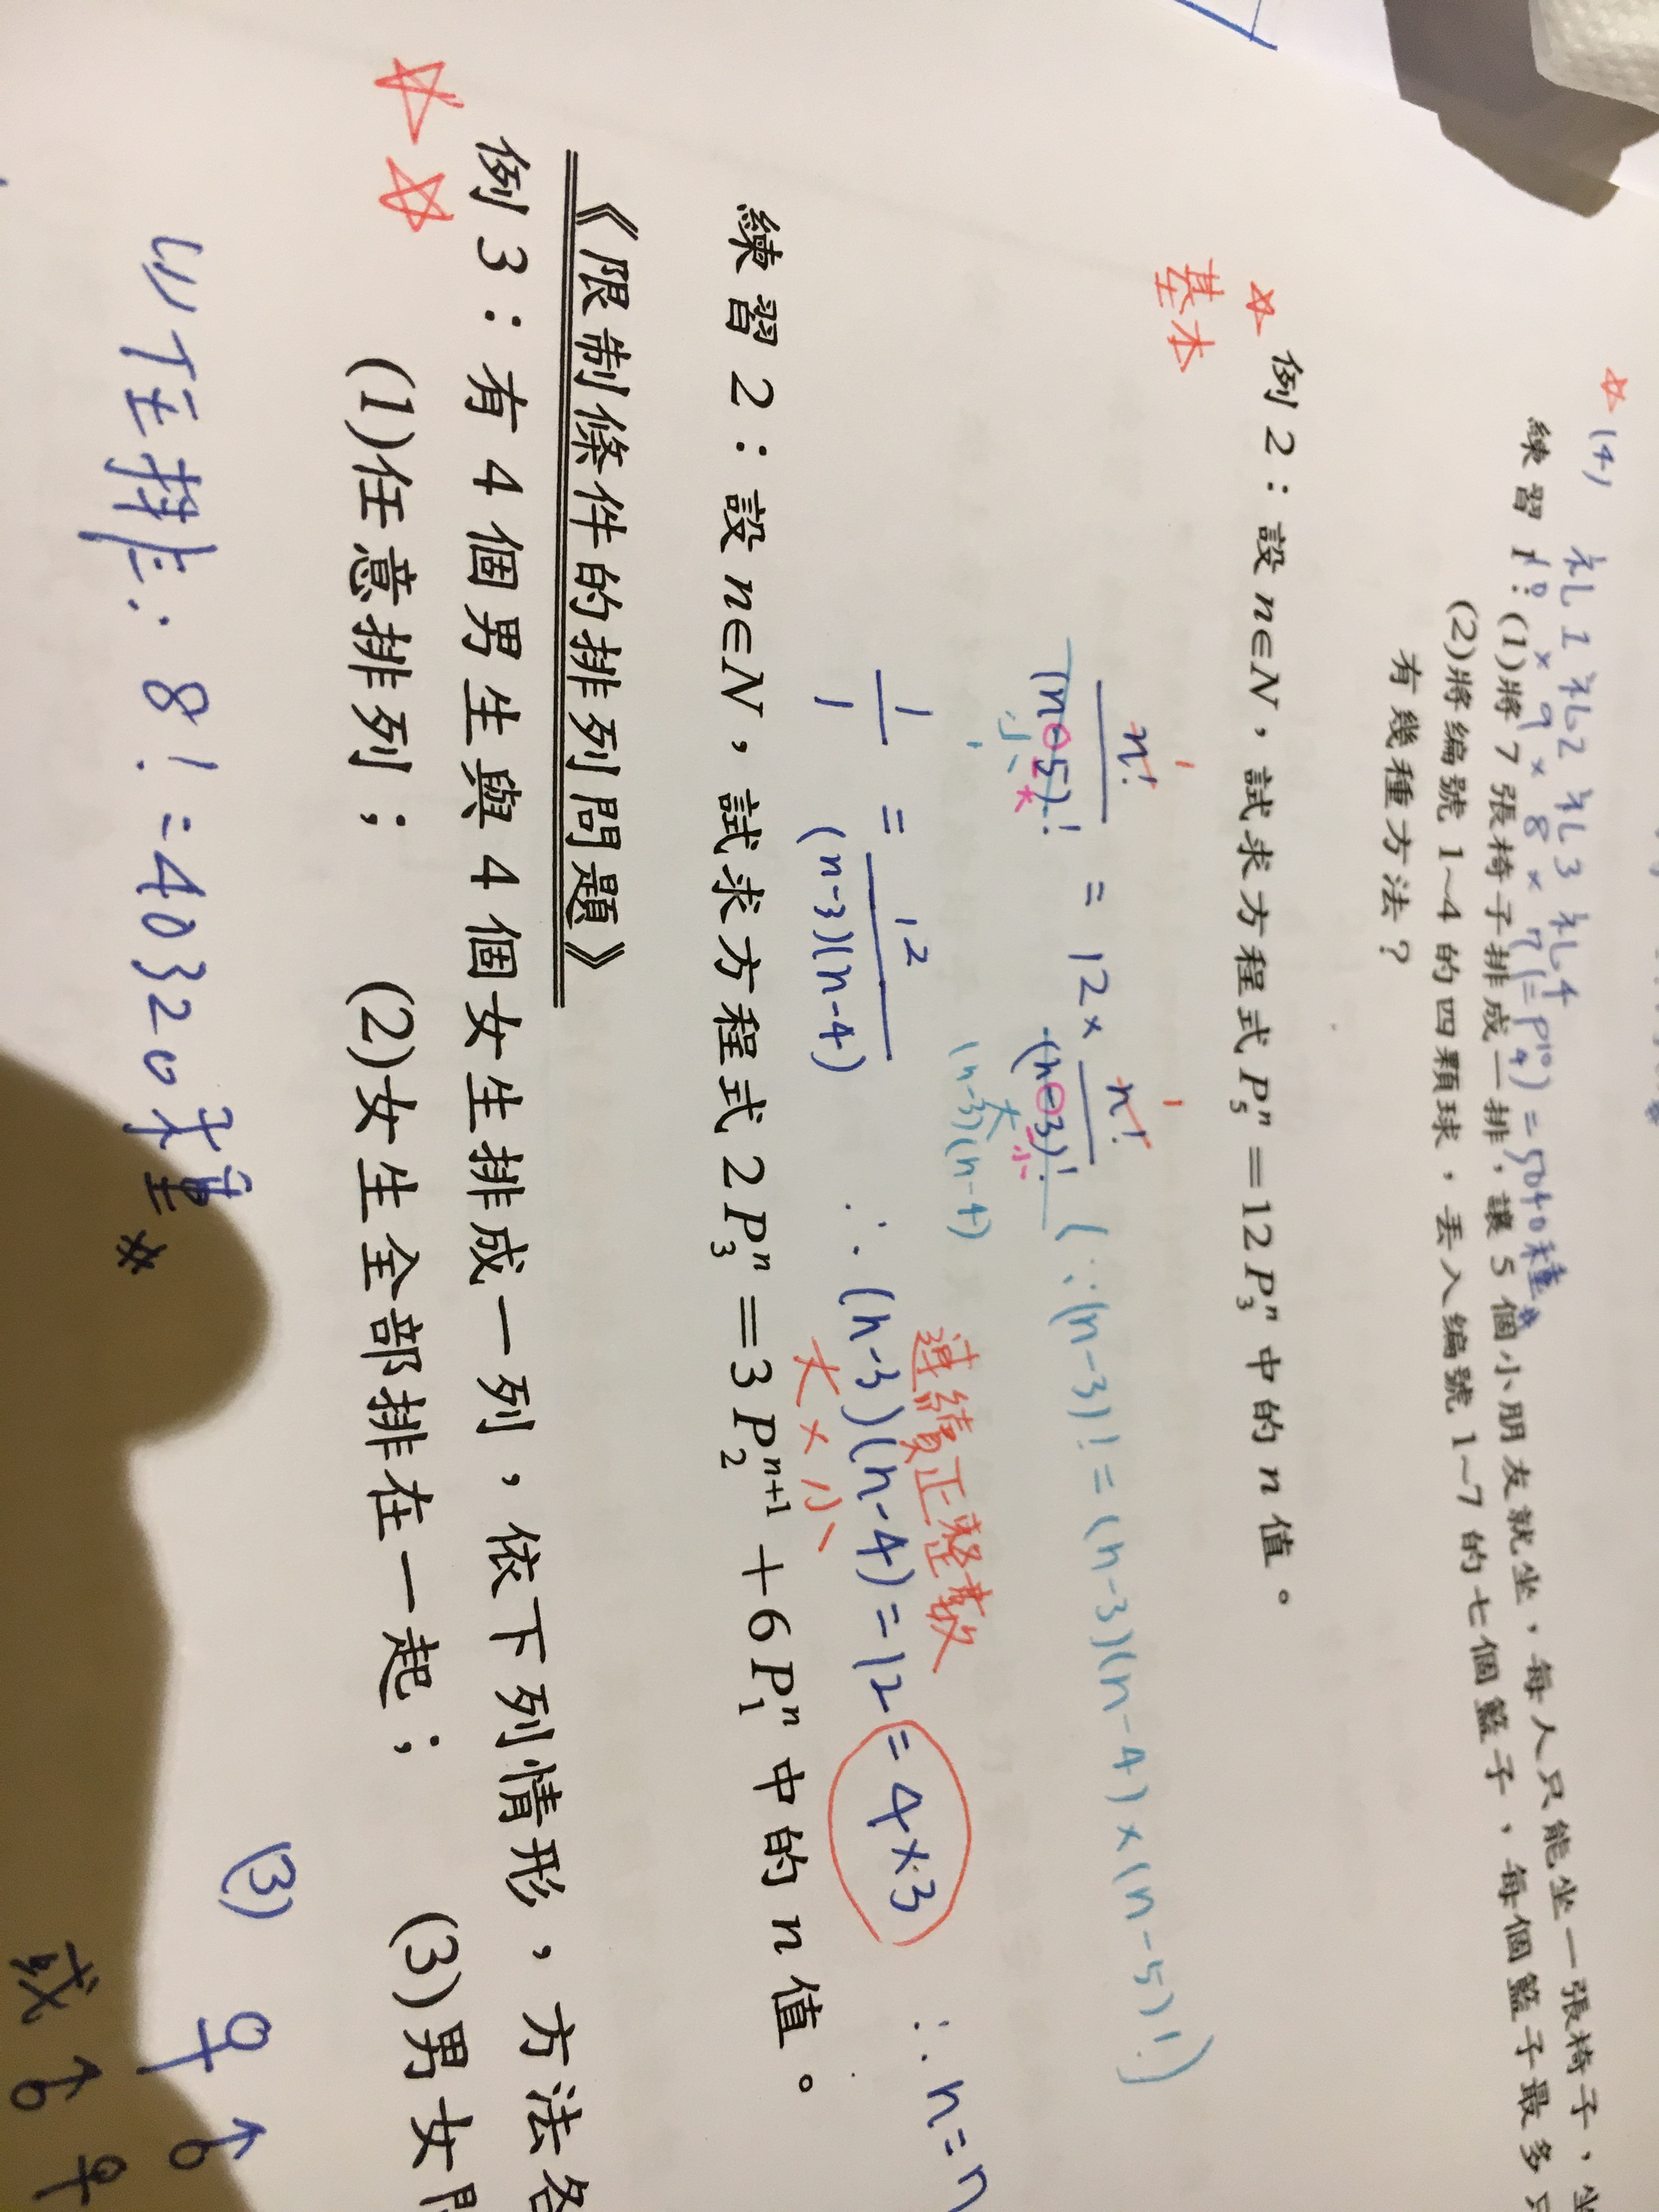 (4) 礼1 礼2 礼3 礼4
10 × 9 × 8 × 7 (= P¹⁰₄) = 5040種
練習 1:(1)將 7 張椅子排成一排,讓 5 個小朋友就坐,每人只能坐一張椅子、坐
(2)將編號 1~4 的四顆球,丟入編號 1~7 的七個籃子,每個籃子最多只
有幾種方法?
例 2:設 n∈N,試求方程式 Pⁿ₅=12Pⁿ₃ 中的 n 值。
基本
n!/(n-5)! = 12× n!/(n-3)! (∵(n-3)! = (n-3)(n-4)×(n-5)!)
小 大 大 小
(n-3)(n-4)
1/1 = 12/((n-3)(n-4)) ∴ (n-3)(n-4)=12=4×3 ∴ n=
連續正整數
大×小
練習 2:設 n∈N,試求方程式 2Pⁿ₃=3Pⁿ⁺¹₂+6Pⁿ₁ 中的 n 值。
《限制條件的排列問題》
例 3:有 4 個男生與 4 個女生排成一列,依下列情形,方法各
(1)任意排列; (2)女生全部排在一起; (3)男女間
(1) 任排: 8! = 40320種
(3) ♀ ♂
或 ♂ ♀